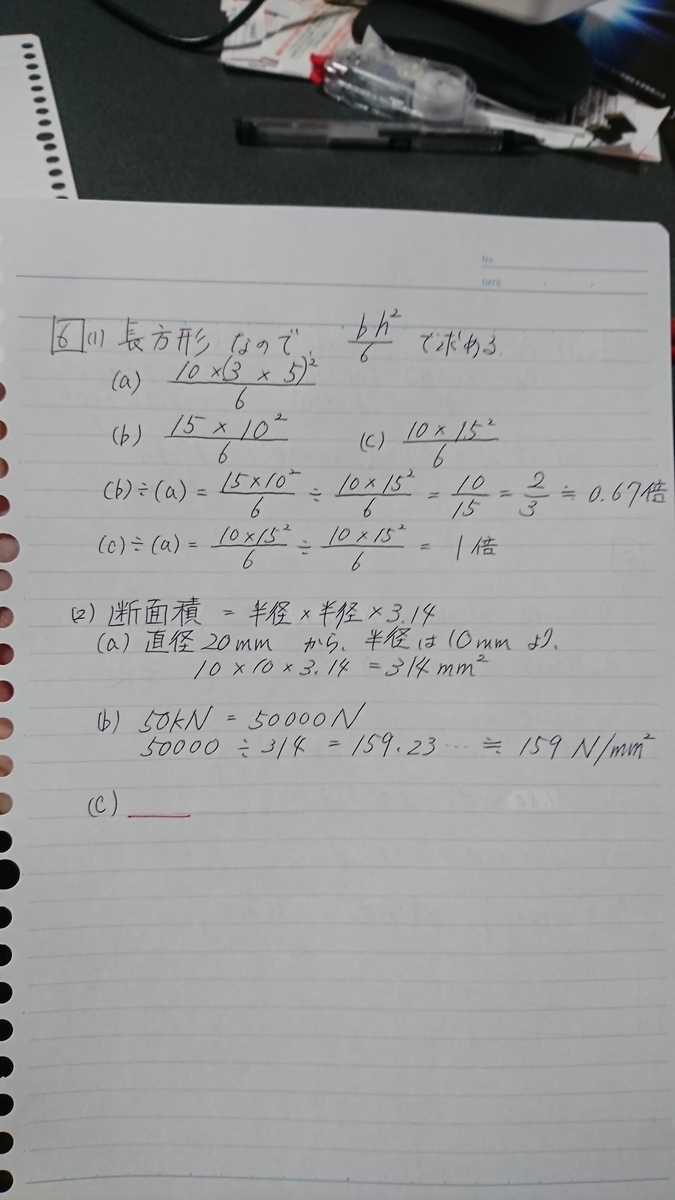 No
DATE
6 (1) 長方形なので、 bh²/6 で求める
(a) 10×(3×5)²/6
(b) 15×10²/6 (c) 10×15²/6
(b)÷(a) = 15×10²/6 ÷ 10×15²/6 = 10/15 = 2/3 ≒ 0.67倍
(c)÷(a) = 10×15²/6 ÷ 10×15²/6 = 1倍
(2) 断面積 = 半径×半径×3.14
(a) 直径20mm から、半径は10mm より、
10×10×3.14 = 314mm²
(b) 50kN = 50000N
50000 ÷ 314 = 159.23… ≒ 159 N/mm²
(C)